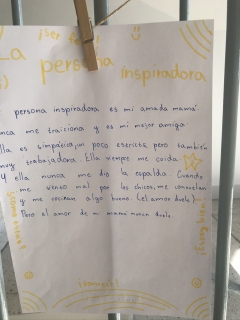 ¡Ser feliz!
La
persona inspiradora
persona inspiradora es mi amada mamá.
nca me traiciona y es mi mejor amiga.
lla es simpática, un poco estricta pero también
muy trabajadora. Ella siempre me cuida.
Y ella nunca me dio la espalda. Cuando
me siento mal por los chicos, me consuelan
y me cocinan algo bueno (el amor duele).
Pero el amor de mi mamá nunca duele.